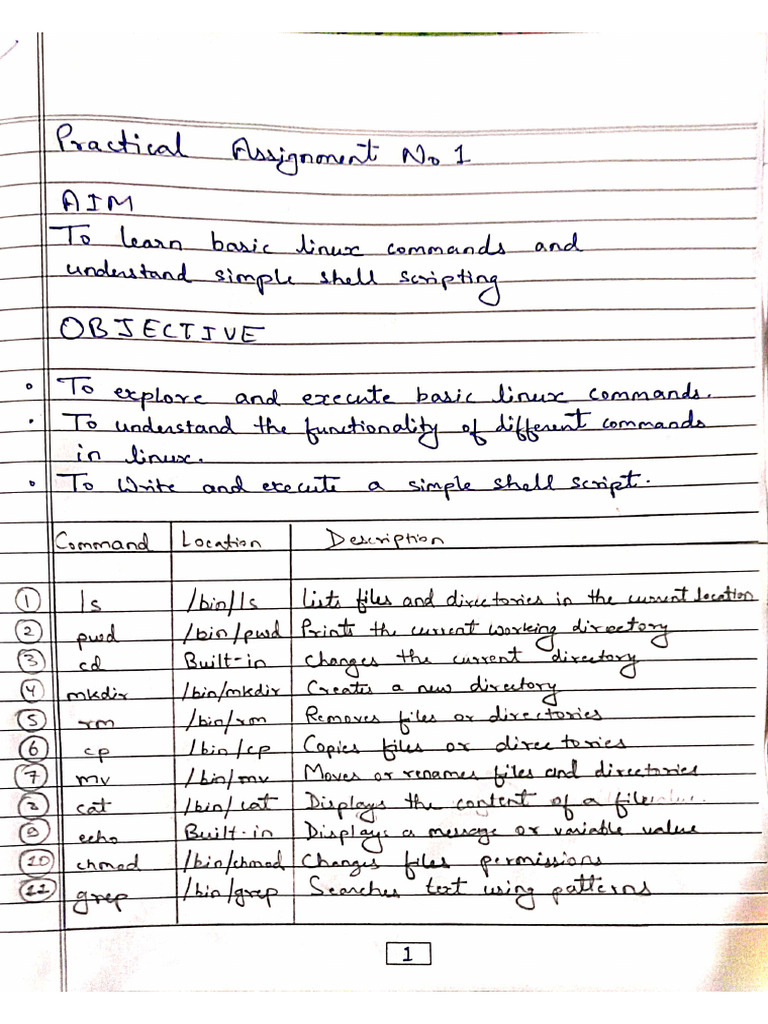 Practical Assignment No 1
AIM
To learn basic linux commands and
understand simple shell scripting
OBJECTIVE
To explore and execute basic linux commands.
To understand the functionality of different commands
in linux.
To Write and execute a simple shell script.
Command Location Description
1 ls /bin/ls Lists files and directories in the current location
2 pwd /bin/pwd Prints the current working directory
3 cd Built-in Changes the current directory
4 mkdir /bin/mkdir Creates a new directory
5 rm /bin/rm Removes files or directories
6 cp /bin/cp Copies files or directories
7 mv /bin/mv Moves or renames files and directories
8 cat /bin/cat Displays the content of a file
9 echo Built-in Displays a message or variable value
10 chmod /bin/chmod Changes files permissions
11 grep /bin/grep Searches text using patterns
1